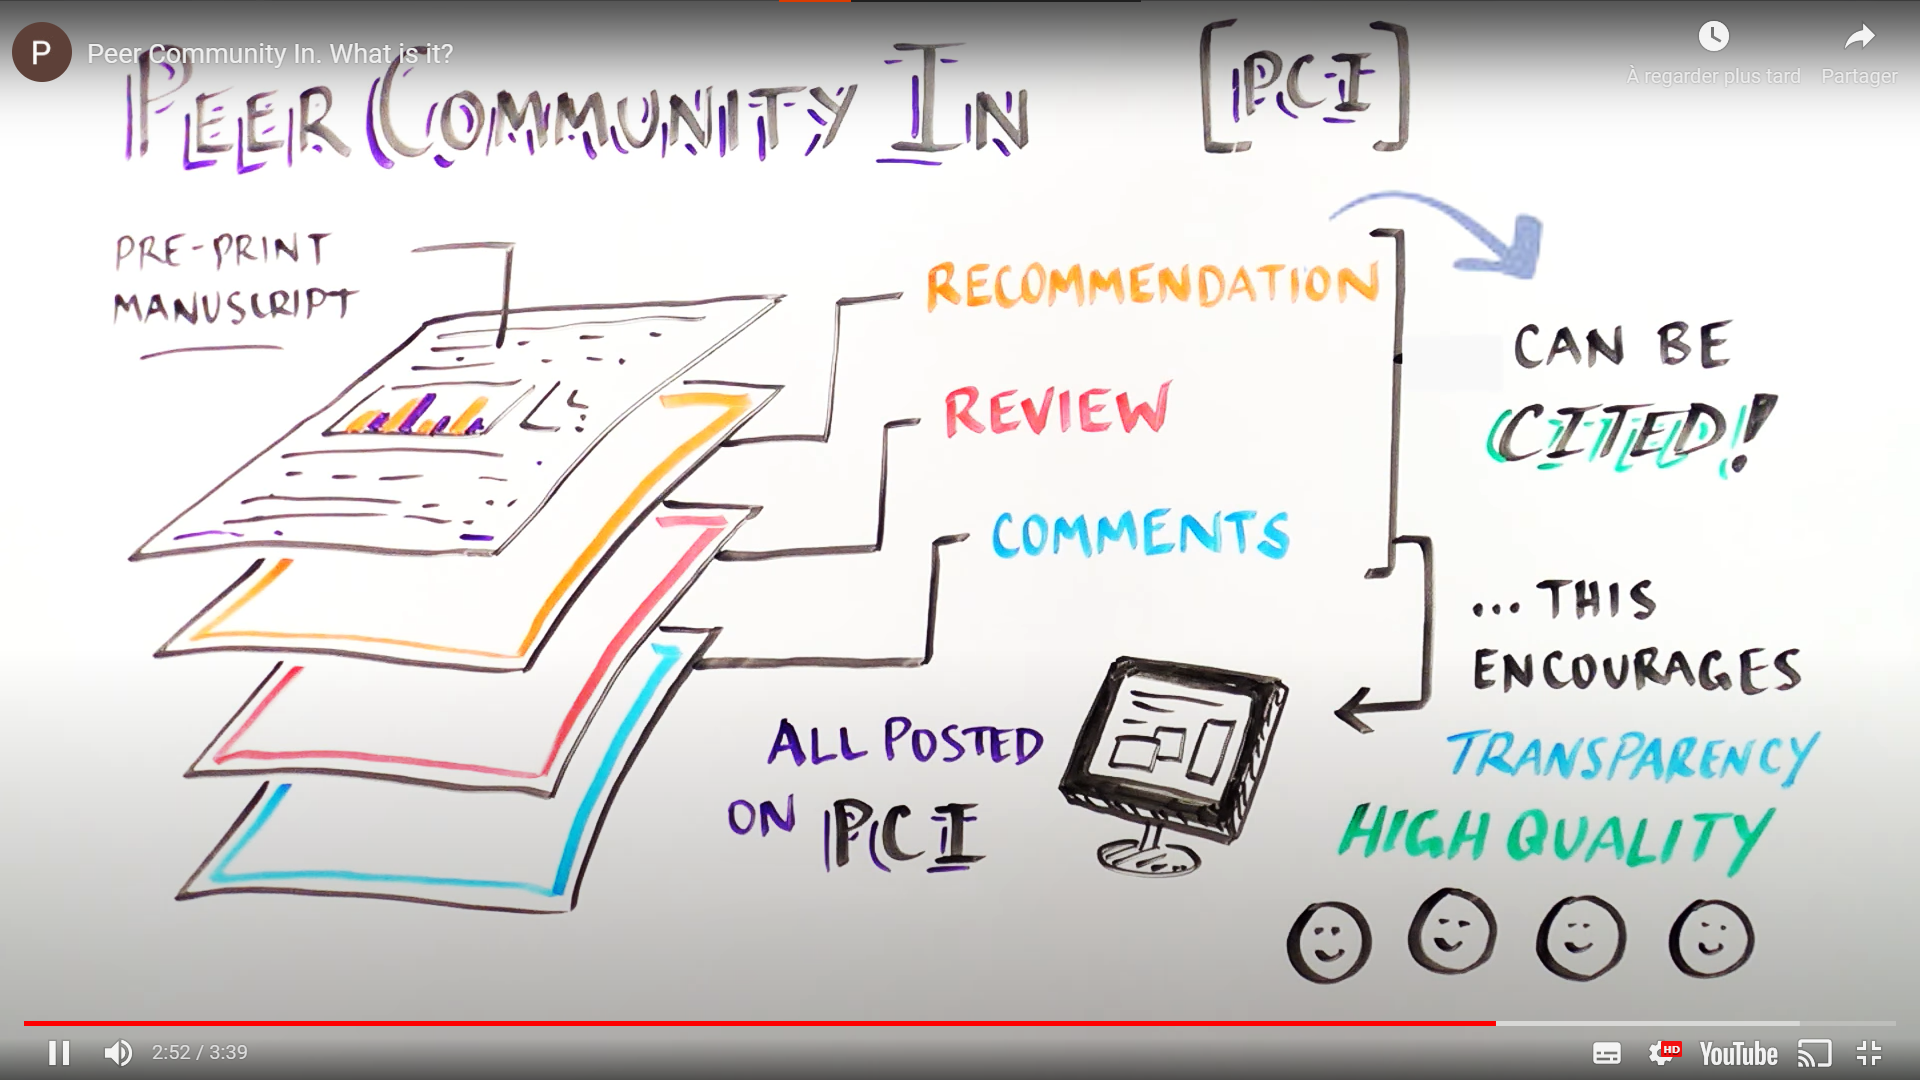 P
Peer Community In. What is it?
À regarder plus tard
Partager
PEER COMMUNITY IN
[PCI]
PRE-PRINT
MANUSCRIPT
RECOMMENDATION
REVIEW
COMMENTS
CAN BE
CITED!
ALL POSTED
ON PCI
... THIS
ENCOURAGES
TRANSPARENCY
HIGH QUALITY
2:52 / 3:39
HD
YouTube